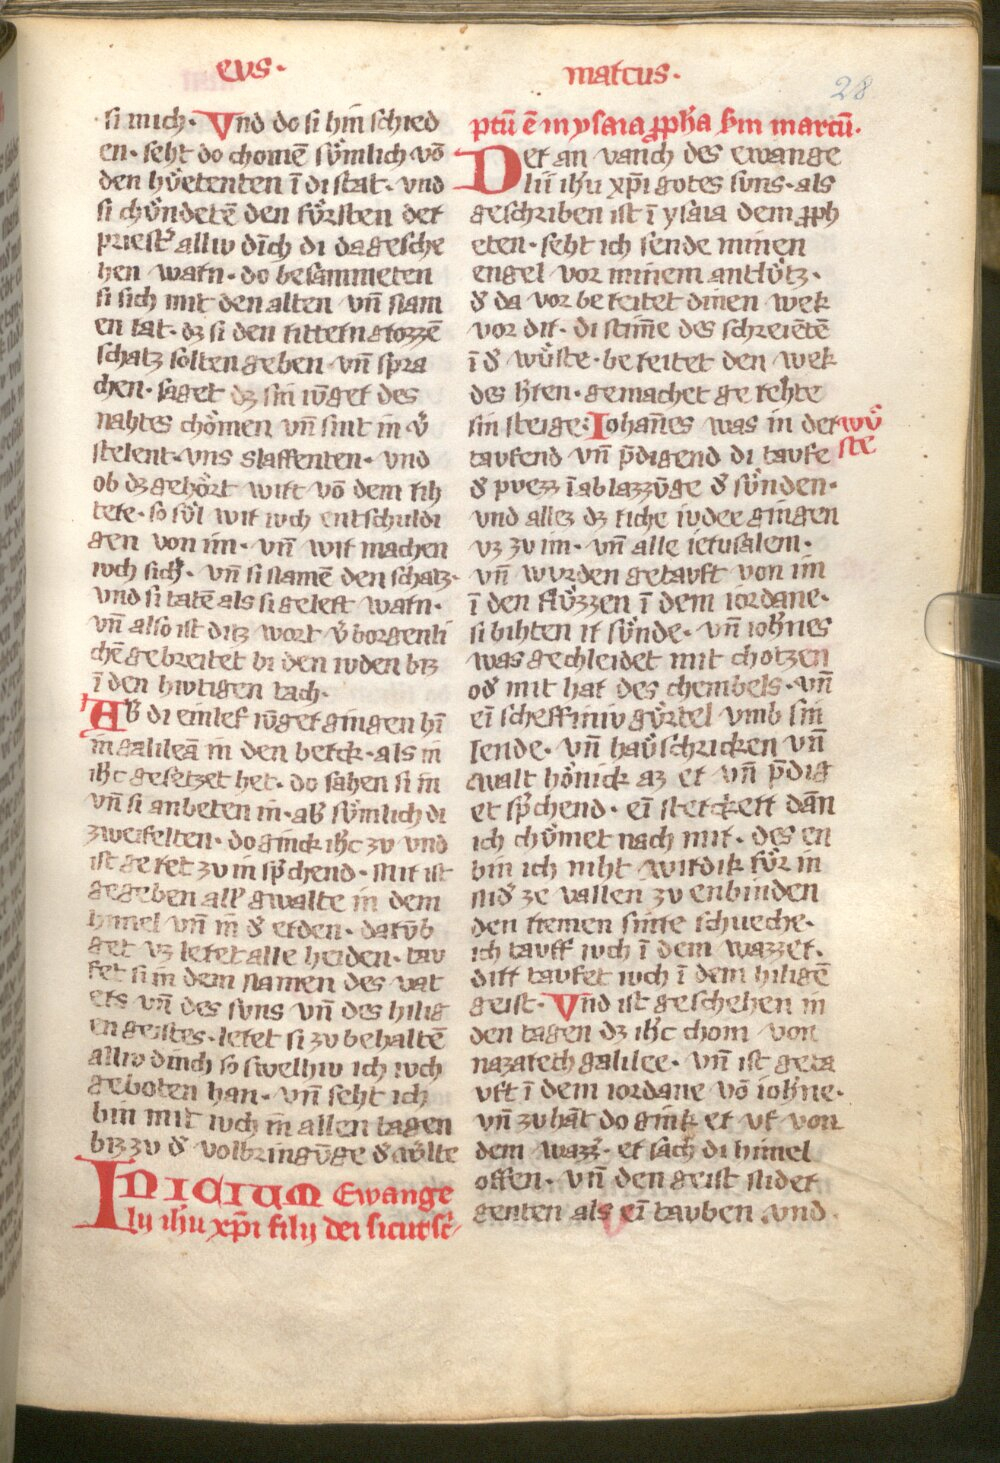 eus·
marcus·
28
si mich· Vnd do si hin schied
en· seht do chomē sv̊mlich vō
den hv̊etenten ī di stat· vnd
si chv̊ndetē den fv̊rsten der
priest͛ alliv dīch di da gesche
hen warn· do besammeten
si sich mit den alten vn̄ nam
en rat· dz si den rittern grozzē
schatz solten geben vn̄ spra
chen· saget dz sin iūger des
nahtes chomen vn̄ sint in v͛
stelent· vns slaffenten· vnd
ob dz gehört wirt vō dem rih
tere· so sv̊l wir iuch entschuldi
gen von im· vn̄ wir machen
iuch sich͛· vn̄ si namē den schatz·
vnd si tatē als si gelert warn·
vn̄ also ist ditz wort v͛borgenli
chē gebreitet bi den iuden biz
ī den hiutigen tach·
Ab͛ di einlef iūger gingen hī
in galileā in den berck· als in
ih̄c gesetzet het· do sahen si in
vn̄ si anbeten in· ab͛ sv̊mlich di
zweifelten· do ginck ih̄c zv vnd
ist geret zv in sp͛chend· mir ist
gegeben all͛ gwalte in dem
himel vn̄ in d͛ erden· darv̄b
get vz leret alle heiden· tau
fet si in dem namen des vat
ers vn̄ des suns vn̄ des hilig
en geistes· leret si zv behaltē
alliv dinch so swelhiv ich iuch
geboten han· vn̄ seht ich
bin mit iuch in allen tagen
biz zv d͛ volbringv̄ge d͛ w͛lte
INICIUM Ewange
lij ih̄u xp̄i filij dei sicut sc̄
ptū ē in ysaia ꝓph͛a s͛m marcū·
Der an vanch des ewange
lii ih̄u xp̄i gotes suns· als
geschriben ist ī ysaia dem ꝓph
eten· seht ich sende minen
engel vor minem antlv̊tz·
d͛ da vor bereitet dinen wek
vor dir· di stim̄e des schreiētē
ī d͛ wv̊ste· bereitet den wek
des h͛ren· gemachet gerehte
sin steige· Iohan̄es was in der wv̊
ste
taufend vn̄ p̄digend di taufe
d͛ puezz ī ablazzv̄ge d͛ sv̊nden·
vnd allez dz riche iudee gingen
vz zv im· vn̄ alle ierusalem·
vn̄ wurden getauft von im
ī den flv̊zzen ī dem iordane·
si bihten ir sv̊nde· vn̄ ioh͛nes
was gechleidet mit chotzen
od͛ mit har des chembels· vn̄
eī scheffiniv gv̊rtel vmb sin
lende· vn̄ hav̊schricken vn̄
walt hönick az er vn̄ p̄dig
et sp͛chend· eī sterckerr dān
ich chv̊met nach mir· des en
bin ich niht wirdik fv̊r in
nid͛ ze vallen zv enbinden
den riemen sinre schueche·
ich tauff iuch ī dem wazzer·
dirr taufet iuch ī dem hiligē
geist· Vnd ist geschehen in
den tagen dz ih̄c chom von
nazarech galilee· vn̄ ist geta
vft ī dem iordane vō ioh͛ne·
vn̄ zv hāt do gink er vf von
dem wazz͛· er sach di himel
offen· vn̄ den geist nider
genten als eī tauben vnd